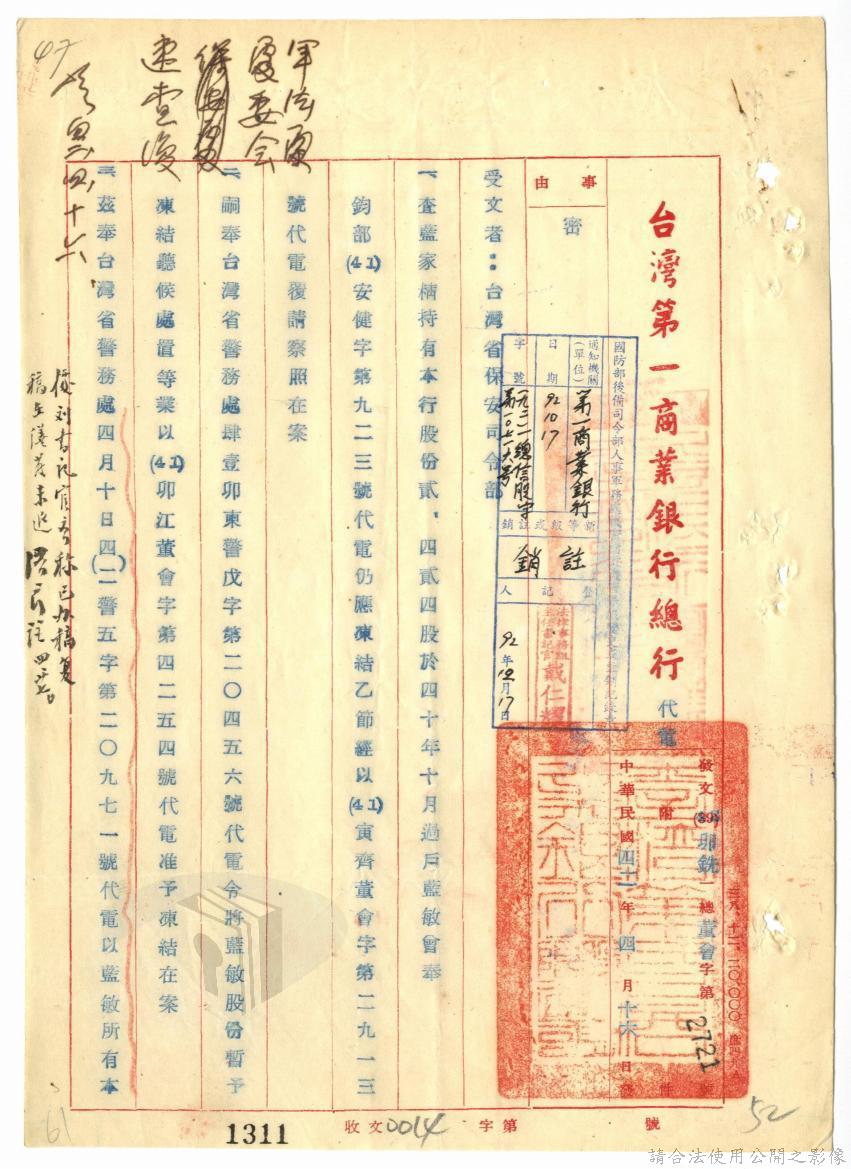 台灣第一商業銀行總行
代電
發文
卯銑
一總董會字第
2721
號
附件
中華民國四十一年四月十六日發
事由
密
受文者：台灣省保安司令部
一、查藍家精持有本行股份貳、四貳四股於四十年十月過戶藍敏曾奉
鈞部(41)安健字第九二三號代電仍應凍結乙節經以(41)寅齊董會字第二九一三
號代電覆請察照在案
二、嗣奉台灣省警務處肆壹卯東警戊字第二〇四五六號代電令將藍敏股份暫予
凍結聽候處置等業以(41)卯江董會字第四二五四號代電准予凍結在案
三、茲奉台灣省警務處四月十日四(一)警五字第二〇九七一號代電以藍敏所有本
通知機關(單位)
第一商業銀行
日期
92 10 17
字號
一九二一總信股字
第一〇七一六號
新等級或註銷
註銷
登記人
戴仁
92年10月17日
軍法處
憂委会
速查復
四、十六
收文0014字第
號
1311
47
52
61
請合法使用公開之影像